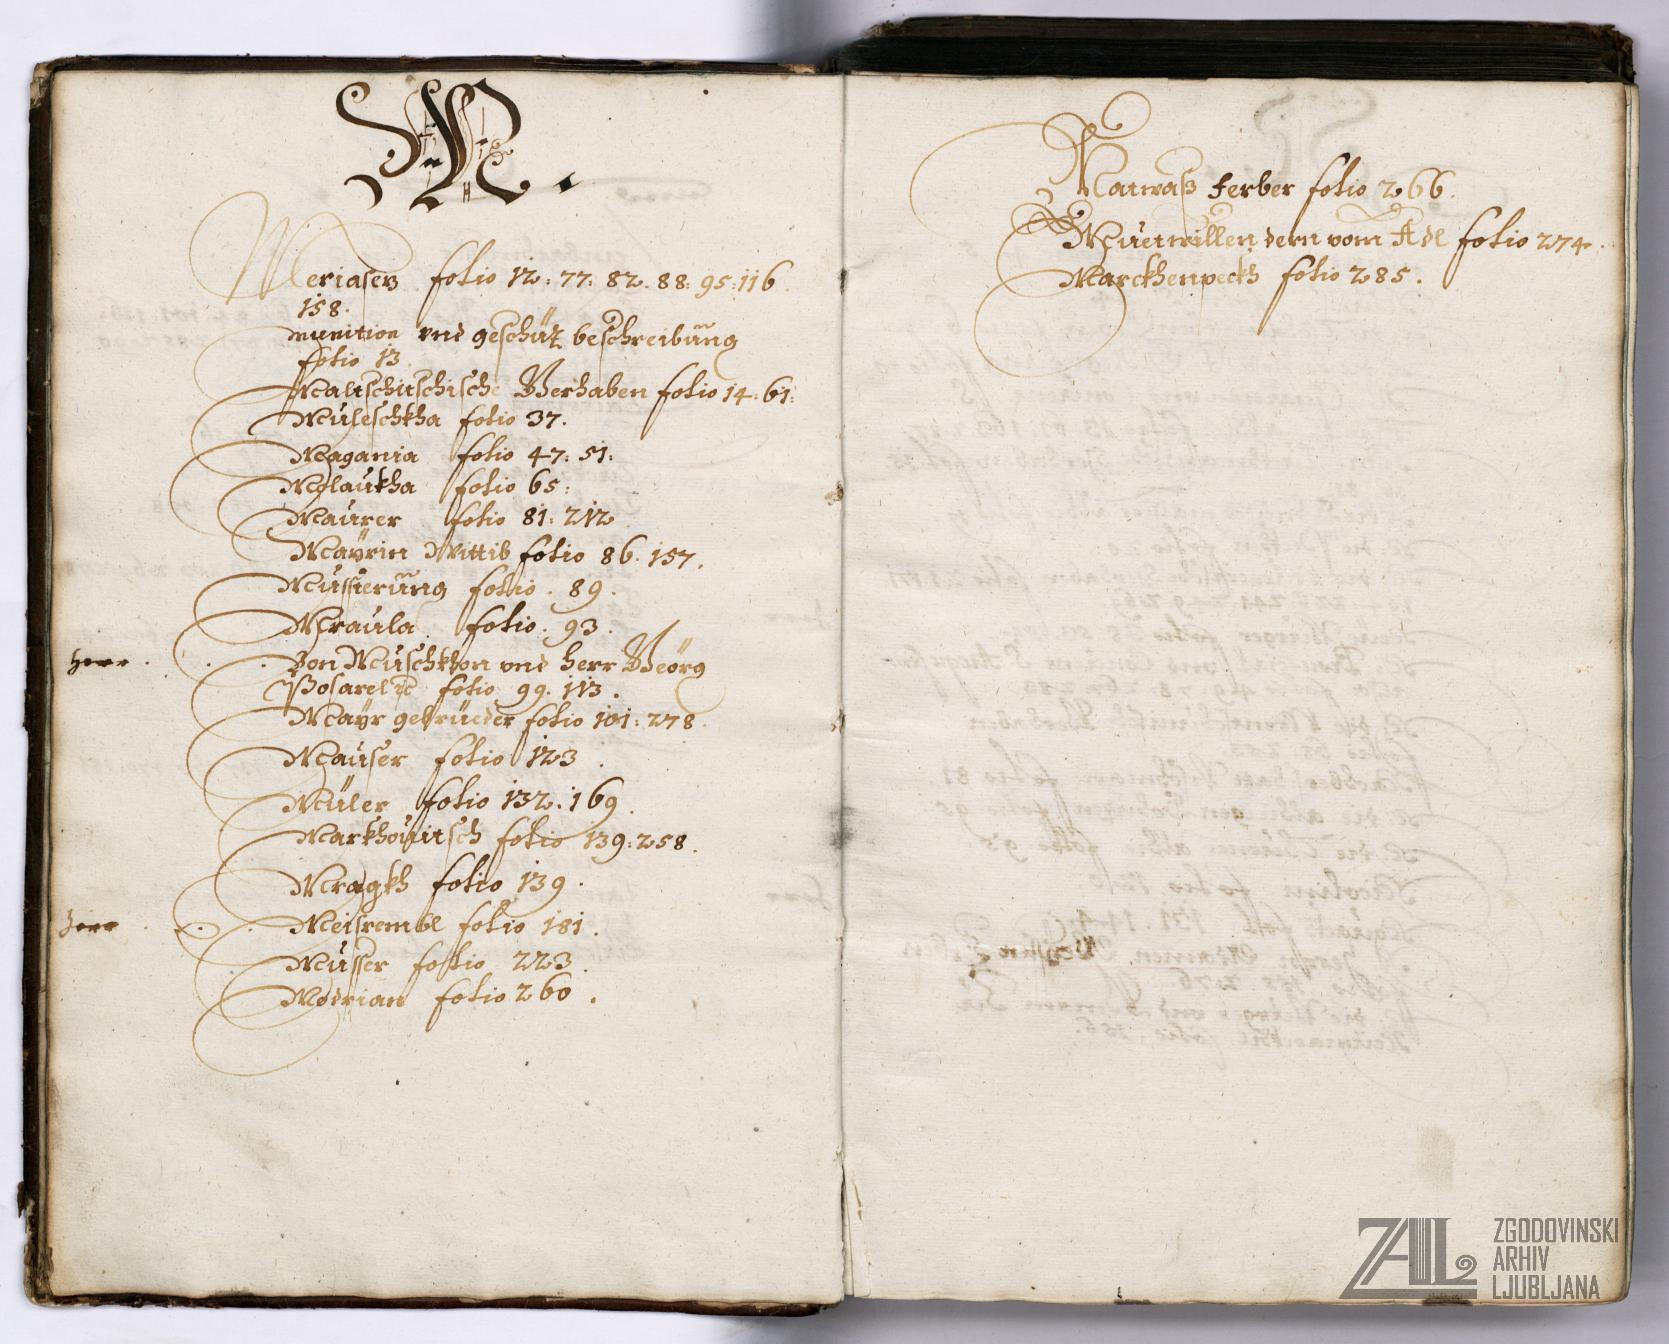 M.
Meriasez folio 12: 77: 82. 88: 95: 116
158.
munition vnd geschütz beschreibung
folio 13.
Maltschitschische Gerhaben folio 14: 61:
Muleschkha folio 37.
Magania folio 47: 51:
Mlaukha folio 65:
Maurer folio 81: 212
Mayrin Wittib folio 86. 157.
Mussierung folio. 89.
Mraula folio. 93.
herr. Von Muschkhon vnd herr Geörg
Posarel folio 99. 113.
Mayr gebrüeder folio 101: 278.
Mauser folio 123.
Müler folio 132. 169.
Markhouitsch folio 139: 258.
Mragkh folio 139.
herr. Meisrembl folio 181.
Musser folio 223.
Modrian folio 260.
Matwasß ferber folio 266.
Muetwillen dern vom Adl folio 274.
Marckhenpeckh folio 285.
ZAL ZGODOVINSKI
ARHIV
LJUBLJANA